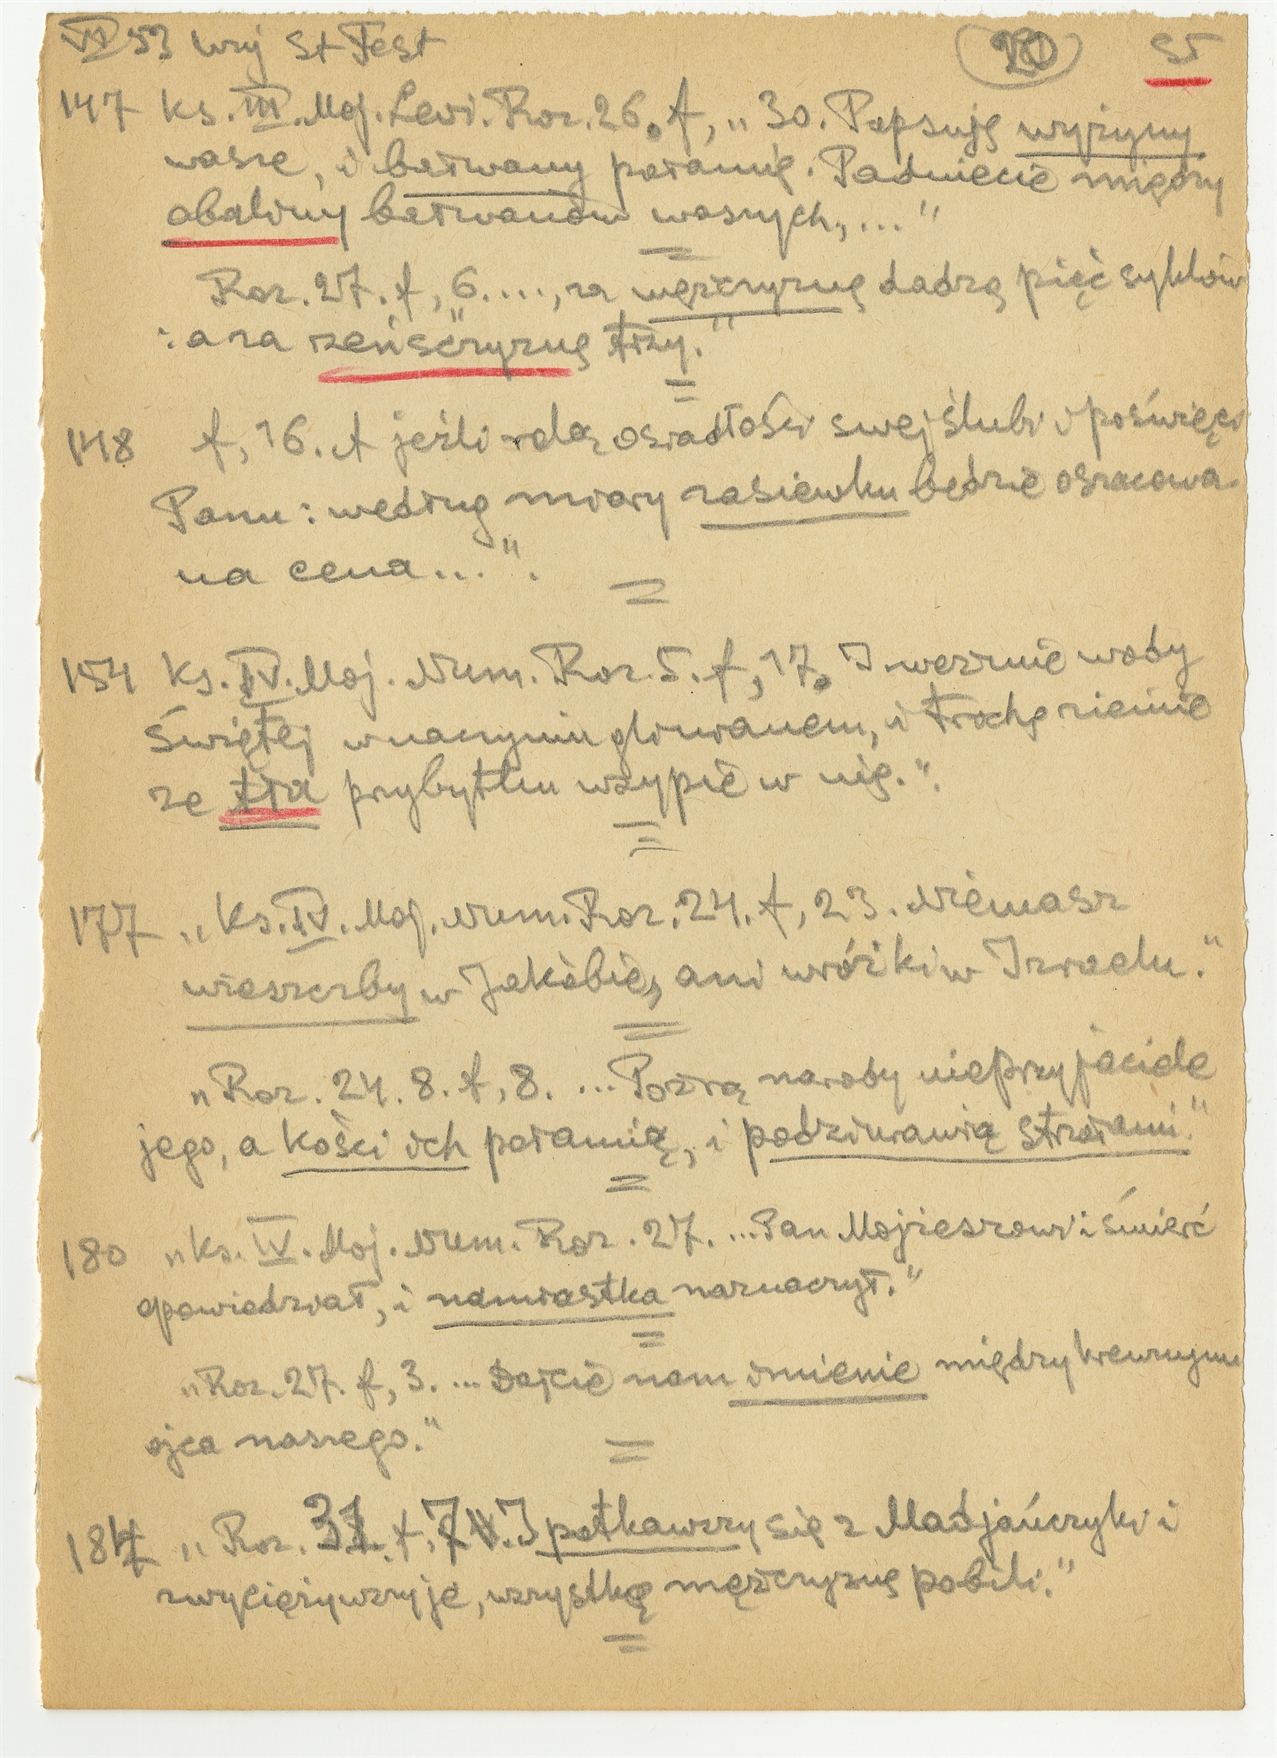 VI 53 Wuj St Test 20 95
147 Ks. III. Moj. Levi. Roz. 26. f, „30. Popsuję wyżyny
wasze, i bałwany połamię. Padniecie między
obaliny bałwanów waszych, ..."
Roz. 27. f, 6. ..., za mężczyznę dadzą pięć syklów
: a za żeńsczyznę trzy."
148 f, 16. A jeźli rolą osiadłości swej ślubi i poświęci
Panu: według miary zasiewku będzie oszacowa-
na cena...".
154 Ks. IV. Moj. Num. Roz. 5. f, 17. I weźmie wody
świętej w naczyniu glinianem, i trochę ziemie
ze tła przybytku wsypie w nię.".
177 „Ks. IV. Moj. Num. Roz. 24. f, 23. Niemasz
wieszczby w Jakóbie, ani wróżki w Izraelu."
„Roz. 24. 8. f, 8. ...Pożrą narody nieprzyjaciele
jego, a kości ich połamią, i podziurawią strzałami."
180 „Ks. IV. Moj. Num. Roz. 27. ...Pan Mojżeszowi śmierć
opowiedział, i namiastka naznaczył."
„Roz. 27. f, 3. ... Dajcie nam imienie między krewnymi
ojca naszego."
184 „Roz. 31. f, 7. I potkawszy się z Madjańczyki i
zwyciężywszy je, wszystkę mężczyznę pobili."